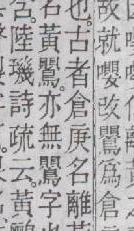 故就嚶改鸎為倉
也。古者倉庚名離
名黃鸎。亦無鸎字也
陸璣詩疏云。黃